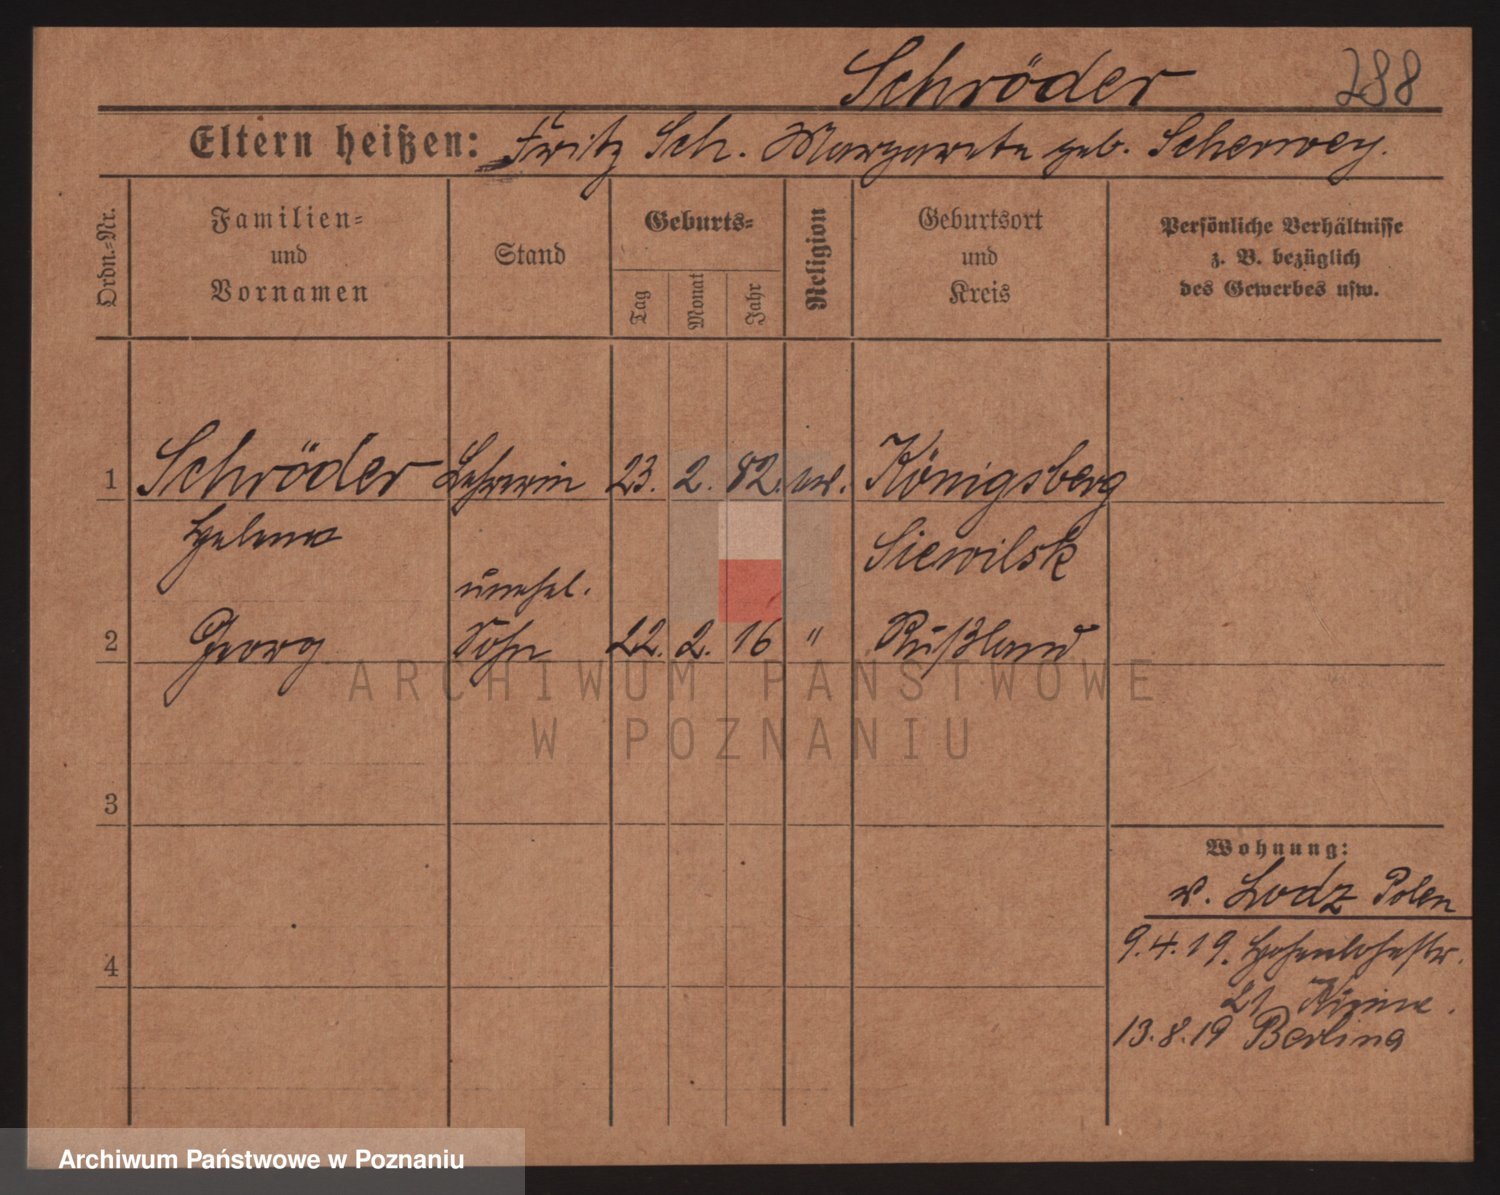 Schröder 288
Eltern heißen: Fritz Sch. Margarete geb.
Ordn.-Nr.
Familien-
und
Vornamen
Stand
Geburts-
Tag
Monat
Jahr
Religion
Geburtsort
und
Kreis
Persönliche Verhältnisse
z. B. bezüglich
des Gewerbes usw.
1 Schröder Lehrerin 23. 2. 82. ev. Königsberg
Helena
Siewilsk
unehel.
2 Georg Sohn 22. 2. 16 " Rußland
3
4
Wohnung:
v. Lodz Polen
9.4.19. Hohenlohestr.
21
13.8.19
ARCHIWUM PAŃSTWOWE
W POZNANIU
Archiwum Państwowe w Poznaniu